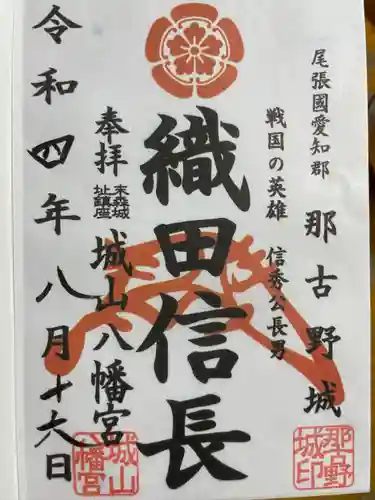 尾張國愛知郡
那古野城
戦国の英雄
信秀公長男
織田信長
奉拝
末森城
址鎮座
城山八幡宮
令和四年八月十六日
那古野
城印
城山
八幡宮